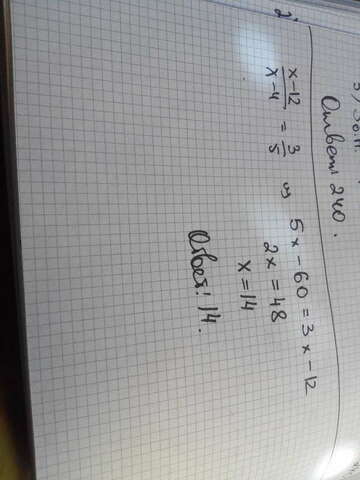 Ответ 240.
2)
x-12/x-4 = 3/5 из 5x-60=3x-12
2x=48
x=14
Ответ: 14.